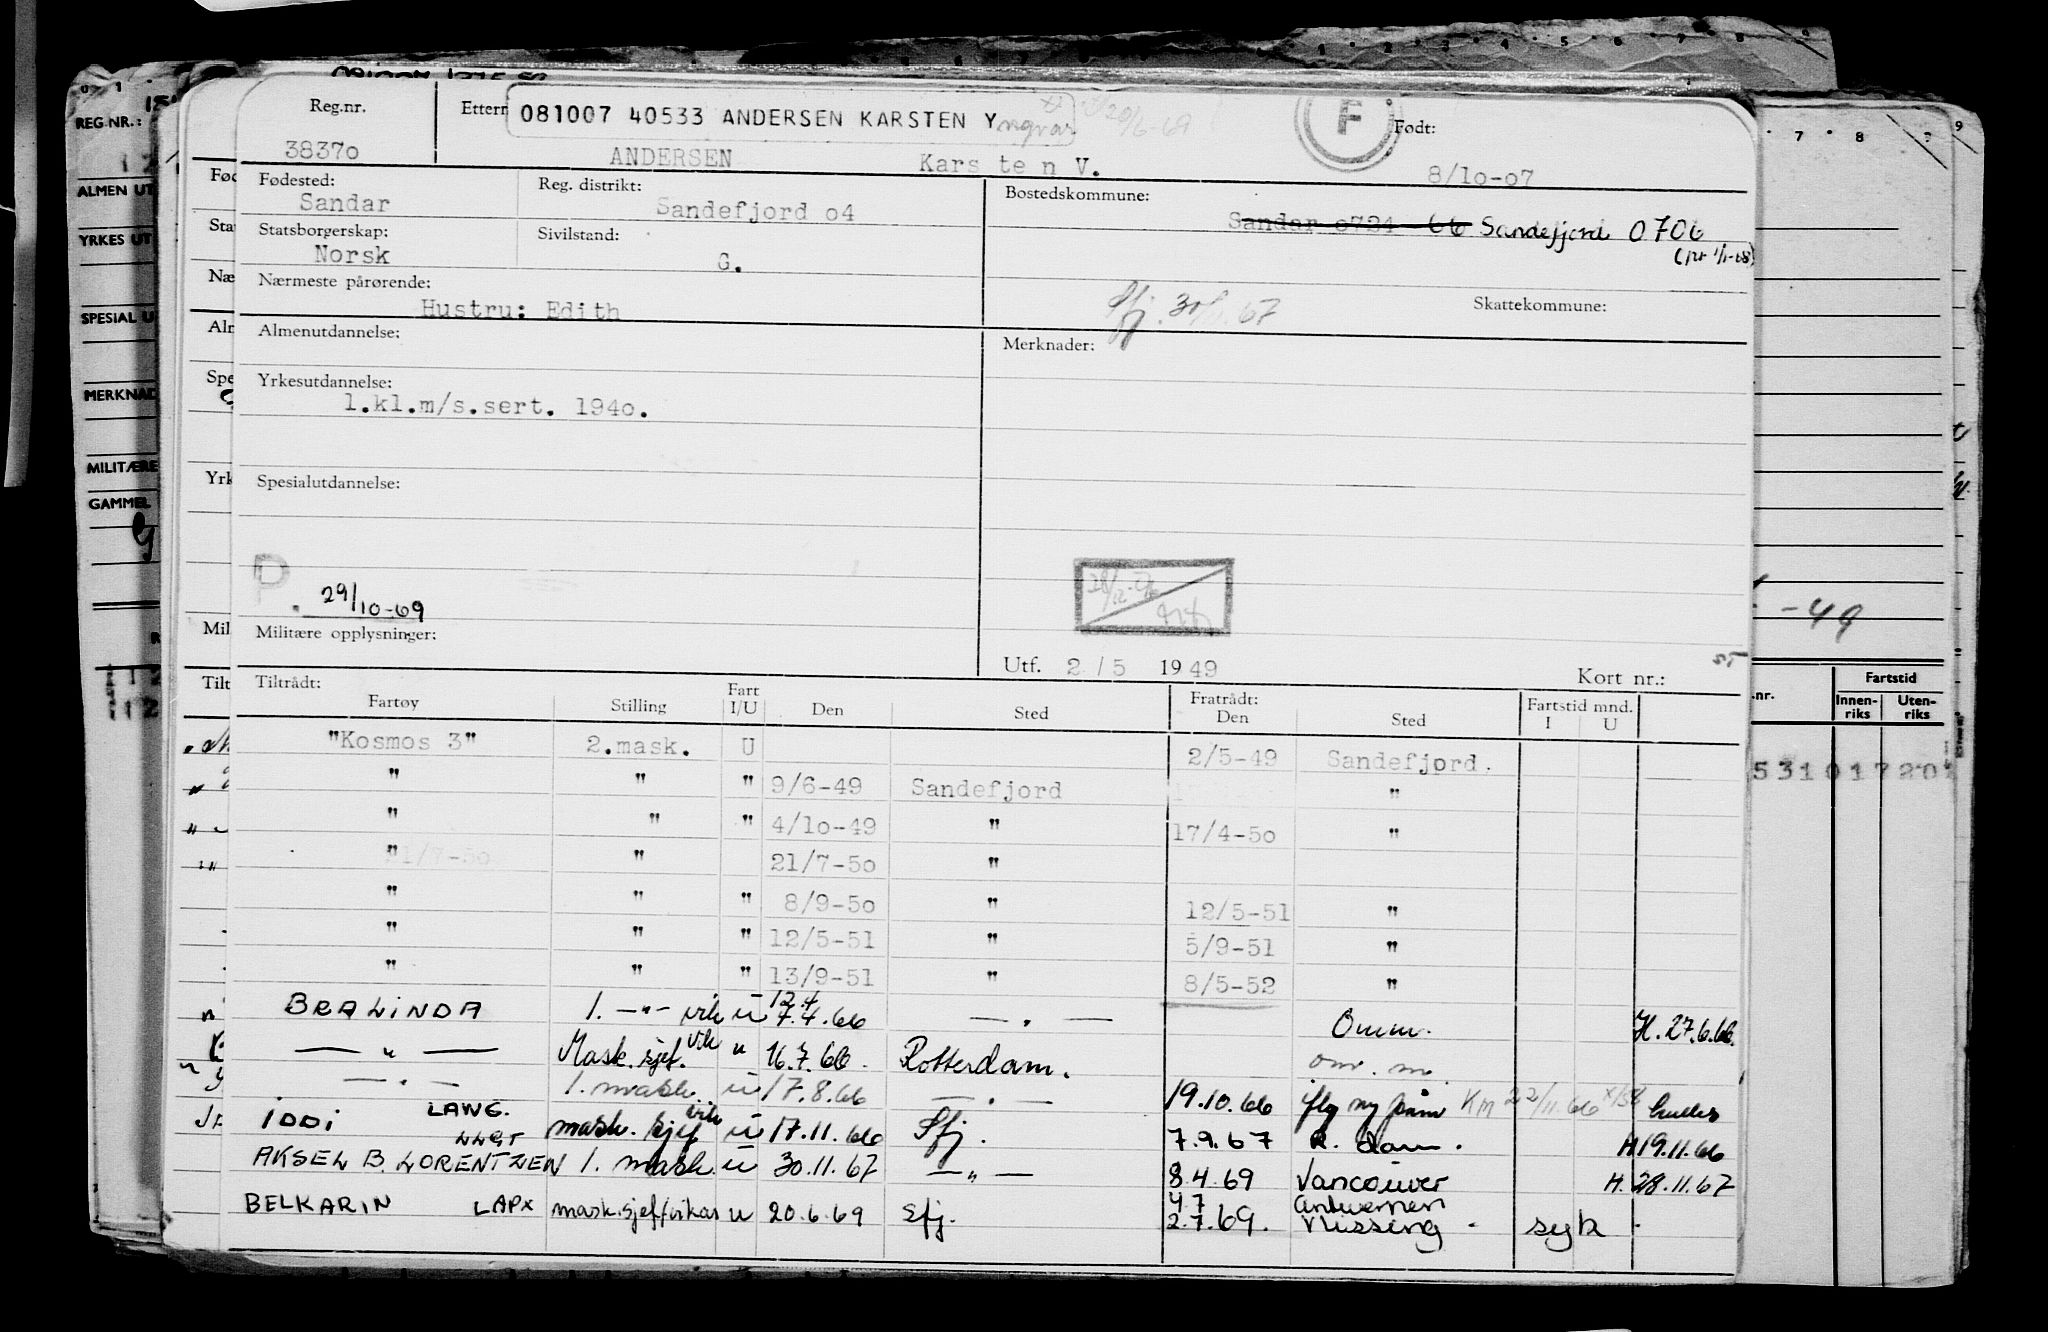 Reg.nr. Ettern 081007 40533 ANDERSEN KARSTEN Yngvar F Født:
38370 ANDERSEN Kars te n V. 8/10-07
Fødested: Reg. distrikt: Bostedskommune:
Sandar Sandefjord 04 Sandar 0724 66 Sandefjord 0706
Statsborgerskap: Sivilstand:
Norsk G.
Nærmeste pårørende: Sfj. 67 Skattekommune:
Hustru: Edith
Almenutdannelse: Merknader:
Yrkesutdannelse:
1.kl.m/s.sert. 1940.
Spesialutdannelse:
P. 29/10-69
Militære opplysninger:
Utf. 2/5 1949 Kort nr.:
Tiltrådt: Fart Fratrådt: Fartstid mnd.
Fartøy Stilling I/U Den Sted Den Sted I U
"Kosmos 3" 2.mask. U 2/5-49 Sandefjord.
" " " 9/6-49 Sandefjord "
" " " 4/10-49 " 17/4-50 "
" " 21/7-50 "
" " " 8/9-50 " 12/5-51 "
" " " 12/5-51 " 5/9-51 "
" " " 13/9-51 " 8/5-52 "
BRALINDA 1. -"- vik u 12.4 7.4.66 — " — Omm. H. 27.6.66
— " — Mask. sjef. vik u 16.7.66 Rotterdam. om. m
— " — 1. mask. u 17.8.66 — " — 19.10.66 fly ny
IDDI LAWG. mask. sjef vik u 17.11.66 Sfj. 7.9.67 R. dam. H 19.11.66
AKSEL B. LORENTZEN LLGT 1. mask. u 30.11.67 — " — 8.4.69 Vancouver H. 28.11.67
BELKARIN LAPX mask.sjef/vikar u 20.6.69 Sfj. 4.7 2.7.69. Antwerpen Vlissing. syk.
REG.NR.:
ALMEN UT
YRKES UT
SPESIAL U
MERKNAD
MILITÆRE
GAMMEL
-49
Fartstid
Innen-riks Uten-riks
5310172